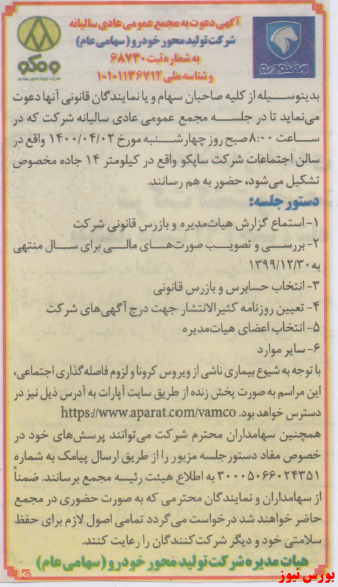 آگهی دعوت به مجمع عمومی عادی سالیانه
شرکت تولید محور خودرو (سهامی عام)
به شماره ثبت ۶۸۷۳۰
و شناسه ملی ۱۰۱۰۱۱۳۶۷۱۲
ومکو
بدینوسیله از کلیه صاحبان سهام و یا نمایندگان قانونی آنها دعوت
می‌نماید تا در جلسه مجمع عمومی عادی سالیانه شرکت که در
ساعت ۸:۰۰ صبح روز چهارشنبه مورخ ۱۴۰۰/۰۴/۰۲ واقع در
سالن اجتماعات شرکت ساپکو واقع در کیلومتر ۱۴ جاده مخصوص
تشکیل می‌شود، حضور به هم رسانند.
دستور جلسه:
۱- استماع گزارش هیات‌مدیره و بازرس قانونی شرکت
۲- بررسی و تصویب صورت‌های مالی برای سال منتهی
به ۱۳۹۹/۱۲/۳۰
۳- انتخاب حسابرس و بازرس قانونی
۴- تعیین روزنامه کثیرالانتشار جهت درج آگهی‌های شرکت
۵- انتخاب اعضای هیات‌مدیره
۶- سایر موارد
با توجه به شیوع بیماری ناشی از ویروس کرونا و لزوم فاصله‌گذاری اجتماعی،
این مراسم به صورت پخش زنده از طریق سایت آپارات به آدرس ذیل نیز در
دسترس خواهد بود. https://www.aparat.com/vamco
همچنین سهامداران محترم شرکت می‌توانند پرسش‌های خود در
خصوص مفاد دستور جلسه مزبور را از طریق ارسال پیامک به شماره
۳۰۰۰۵۰۶۶۰۲۴۳۵۱ به اطلاع هیئت رئیسه مجمع برسانند. ضمناً
از سهامداران و نمایندگان محترمی که به صورت حضوری در مجمع
حاضر خواهند شد درخواست می‌گردد تمامی اصول لازم برای حفظ
سلامتی خود و دیگر شرکت‌کنندگان را رعایت کنند.
هیات مدیره شرکت تولید محور خودرو (سهامی عام)
بورس نیوز